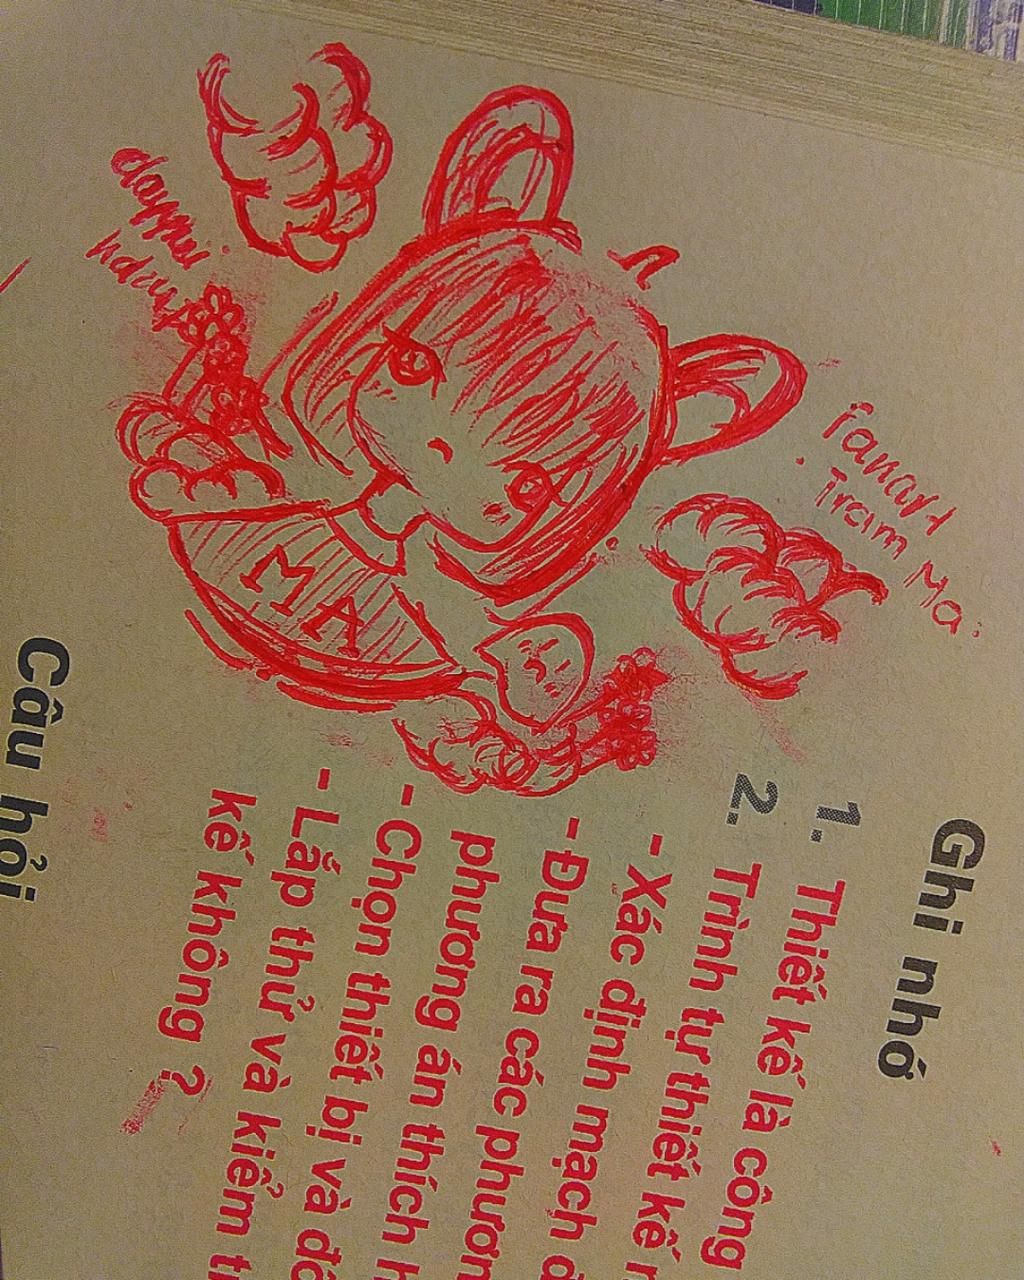 Fanart
Tram Ma:
MA
Ghi nhớ
1. Thiết kế là công
2. Trình tự thiết kế
- Xác định mạch
- Đưa ra các phươn
phương án thích
- Chọn thiết bị và
- Lắp thử và kiểm
kế không ?
Câu hỏi